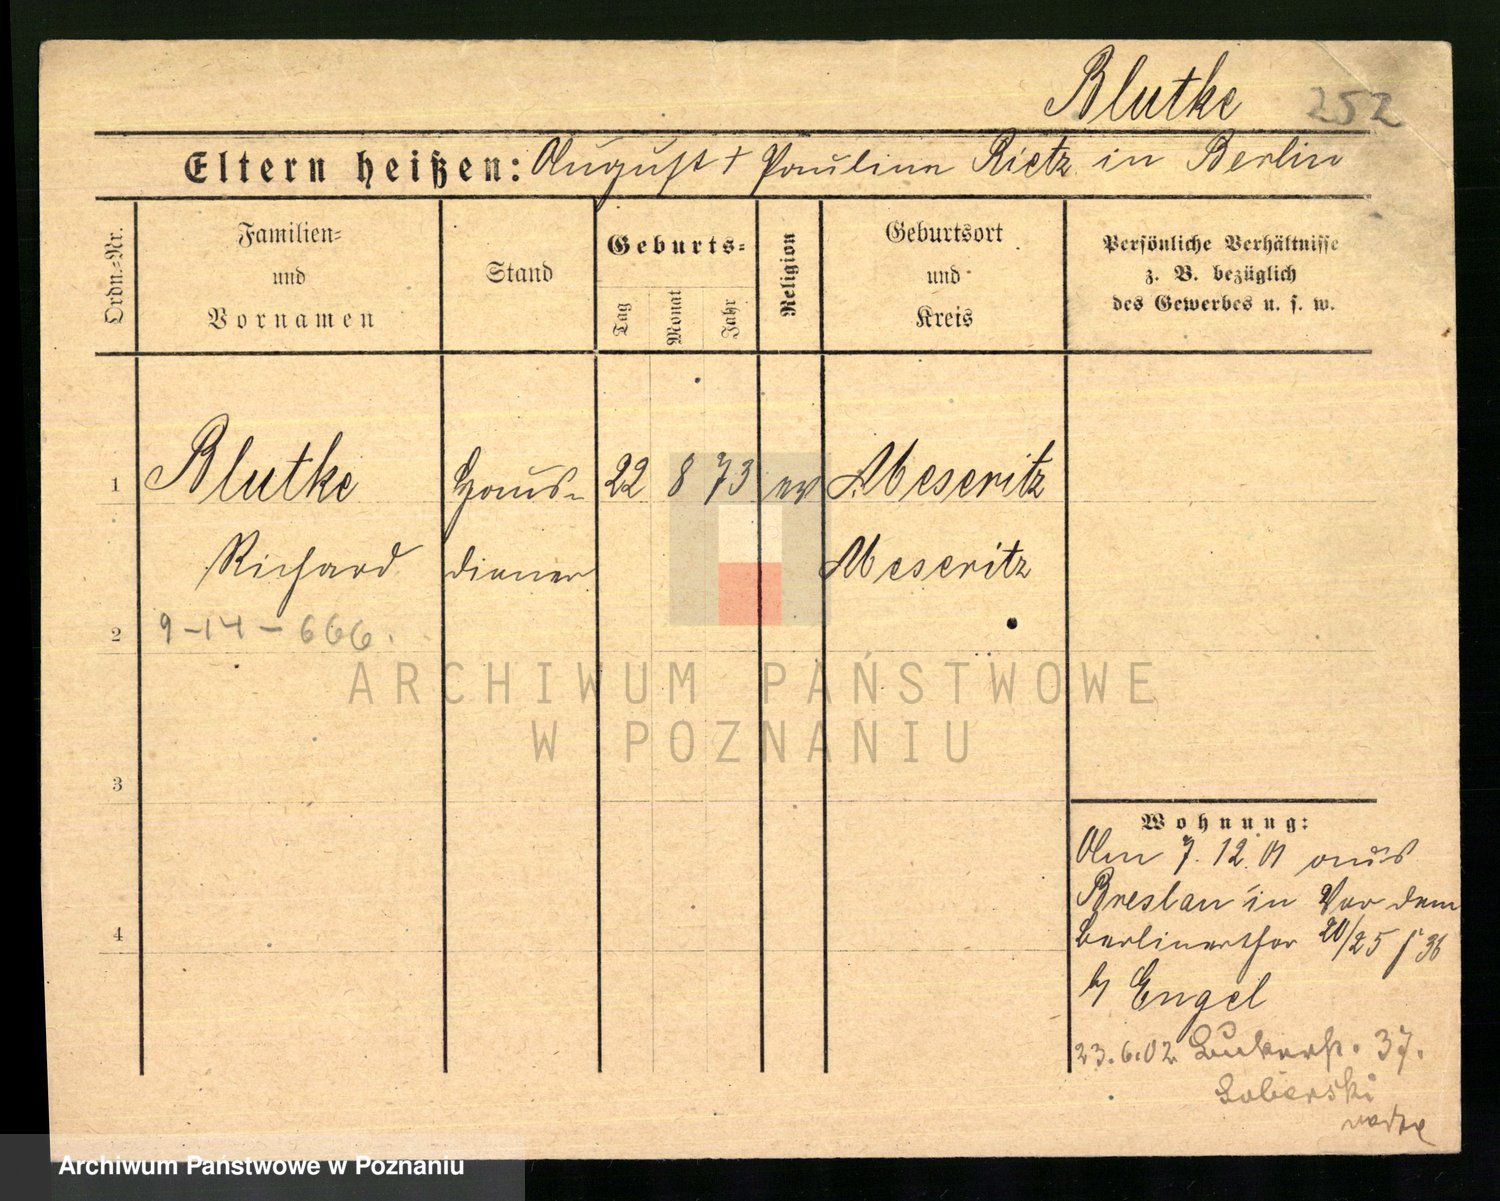 Blutke 252
Eltern heißen: August † Pauline Rietz in Berlin
Ordn.-Nr.
Familien-
und
Vornamen
Stand
Geburts-
Tag
Monat
Jahr
Religion
Geburtsort
und
Kreis
Persönliche Verhältnisse
z. B. bezüglich
des Gewerbes u. s. w.
1 Blutke Haus- 22 8 73 ev Meseritz
Richard diener Meseritz
2 9-14-666.
ARCHIWUM PAŃSTWOWE
W POZNANIU
3
4
Wohnung:
Am 7. 12. 01 aus
Breslau in Vor dem
Berlinerthor 20/25 36
b/ Engel
23.6.02 37.
Archiwum Państwowe w Poznaniu